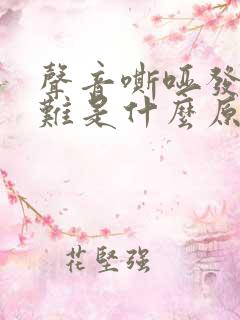 聲音嘶啞發
難是什麼原
花堅强